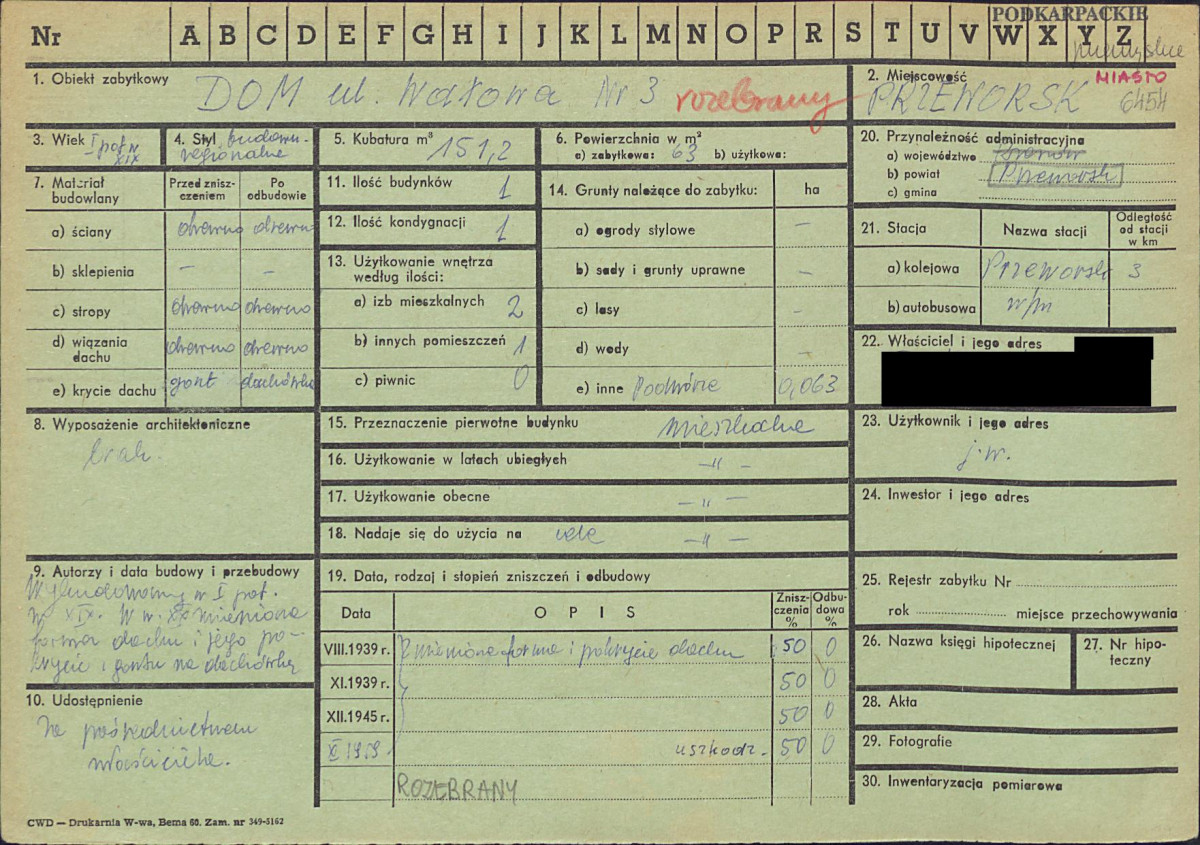 PODKARPACKIE
Nr A B C D E F G H I J K L M N O P R S T U V W X Y Z
przemyskie
1. Obiekt zabytkowy DOM ul. Wałowa Nr 3 rozebrany
2. Miejscowość MIASTO
PRZEWORSK 6454
3. Wiek I poł. w XIX
4. Styl budown. regionalne
5. Kubatura m³ 151,2
6. Powierzchnia w m²
a) zabytkowa: 63 b) użytkowa:
20. Przynależność administracyjna
a) województwo
b) powiat Przeworsk
c) gmina
7. Materiał budowlany
Przed zniszczeniem
Po odbudowie
a) ściany drewno drewno
b) sklepienia – –
c) stropy drewno drewno
d) wiązania dachu drewno drewno
e) krycie dachu gont dachówka
11. Ilość budynków 1
12. Ilość kondygnacji 1
13. Użytkowanie wnętrza według ilości:
a) izb mieszkalnych 2
b) innych pomieszczeń 1
c) piwnic 0
14. Grunty należące do zabytku: ha
a) ogrody stylowe –
b) sady i grunty uprawne –
c) lasy –
d) wody –
e) inne Podwórze 0,063
21. Stacja Nazwa stacji Odległość od stacji w km
a) kolejowa Przeworsk 3
b) autobusowa w/m
22. Właściciel i jego adres
8. Wyposażenie architektoniczne
brak.
15. Przeznaczenie pierwotne budynku mieszkalne
16. Użytkowanie w latach ubiegłych –"–
17. Użytkowanie obecne –"–
18. Nadaje się do użycia na cele –"–
23. Użytkownik i jego adres
j.w.
24. Inwestor i jego adres
9. Autorzy i data budowy i przebudowy
Wybudowany w I poł.
w XIX. W w. XX zmieniona
forma dachu i jego po-
krycie z gontu na dachówkę
10. Udostępnienie
Za pośrednictwem
właściciela.
19. Data, rodzaj i stopień zniszczeń i odbudowy
Data OPIS Zniszczenia % Odbudowa %
VIII.1939 r. Zmieniona forma i pokrycie dachu 50 0
XI.1939 r. 50 0
XII.1945 r. 50 0
1959 uszkodz. 50 0
ROZEBRANY
25. Rejestr zabytku Nr
rok miejsce przechowywania
26. Nazwa księgi hipotecznej
27. Nr hipoteczny
28. Akta
29. Fotografie
30. Inwentaryzacja pomiarowa
CWD — Drukarnia W-wa, Bema 60. Zam. nr 349-5162